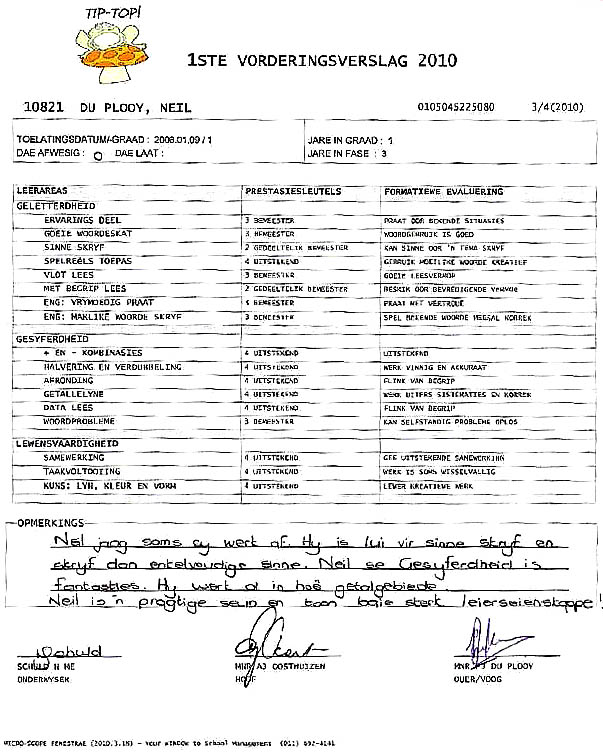 TIP-TOP!
1STE VORDERINGSVERSLAG 2010
10821 DU PLOOY, NEIL 0105045225080 3/4(2010)
TOELATINGSDATUM/GRAAD : 2008.01.09 / 1 JARE IN GRAAD : 1
DAE AFWESIG : 0 DAE LAAT : JARE IN FASE : 3
LEERAREAS PRESTASIESLEUTELS FORMATIEWE EVALUERING
GELETTERDHEID
ERVARINGS DEEL 3 BEMEESTER PRAAT OOR BEKENDE SITUASIES
GOEIE WOORDESKAT 3 BEMEESTER WOORDGEBRUIK IS GOED
SINNE SKRYF 2 GEDEELTELIK BEMEESTER KAN SINNE OOR 'N TEMA SKRYF
SPELREËLS TOEPAS 4 UITSTEKEND GEBRUIK MOEILIKE WOORDE KREATIEF
VLOT LEES 3 BEMEESTER GOEIE LEESVERMOË
MET BEGRIP LEES 2 GEDEELTELIK BEMEESTER BESKIK OOR BEVREDIGENDE VERMOË
ENG: VRYMOEDIG PRAAT BEMEESTER PRAAT MET VERTROUE
ENG: MAKLIKE WOORDE SKRYF 3 BEMEESTER SPEL BEKENDE WOORDE MEESAL KORREK
GESYFERDHEID
+ EN - KOMBINASIES 4 UITSTEKEND UITSTEKEND
HALVERING EN VERDUBBELING 4 UITSTEKEND WERK VINNIG EN AKKURAAT
AFRONDING 4 UITSTEKEND FLINK VAN BEGRIP
GETALLELYNE 4 UITSTEKEND WERK UITERS SISTEMATIES EN KORREK
DATA LEES 4 UITSTEKEND FLINK VAN BEGRIP
WOORDPROBLEME 3 BEMEESTER KAN SELFSTANDIG PROBLEME OPLOS
LEWENSVAARDIGHEID
SAMEWERKING 4 UITSTEKEND GEE UITSTEKENDE SAMEWERKING
TAAKVOLTOOIING 4 UITSTEKEND WERK IS SOMS WISSELVALLIG
KUNS: LYN, KLEUR EN VORM 4 UITSTEKEND LEWER KREATIEWE WERK
OPMERKINGS
Neil jaag soms sy werk af. Hy is lui vir sinne skryf en
skryf dan enkelvoudige sinne. Neil se Gesyferdheid is
fantasties. Hy werk al in hoë getalgebiede.
Neil is 'n pragtige seun en toon baie sterk leierseienskappe!
SCHULD N ME MNR AJ OOSTHUIZEN MNR. DU PLOOY
ONDERWYSER HOOF OUER/VOOG
MICRO-SCOPE FENESTRAE (2010.3.18) - Your WINDOW to School Management (011) 692-4141